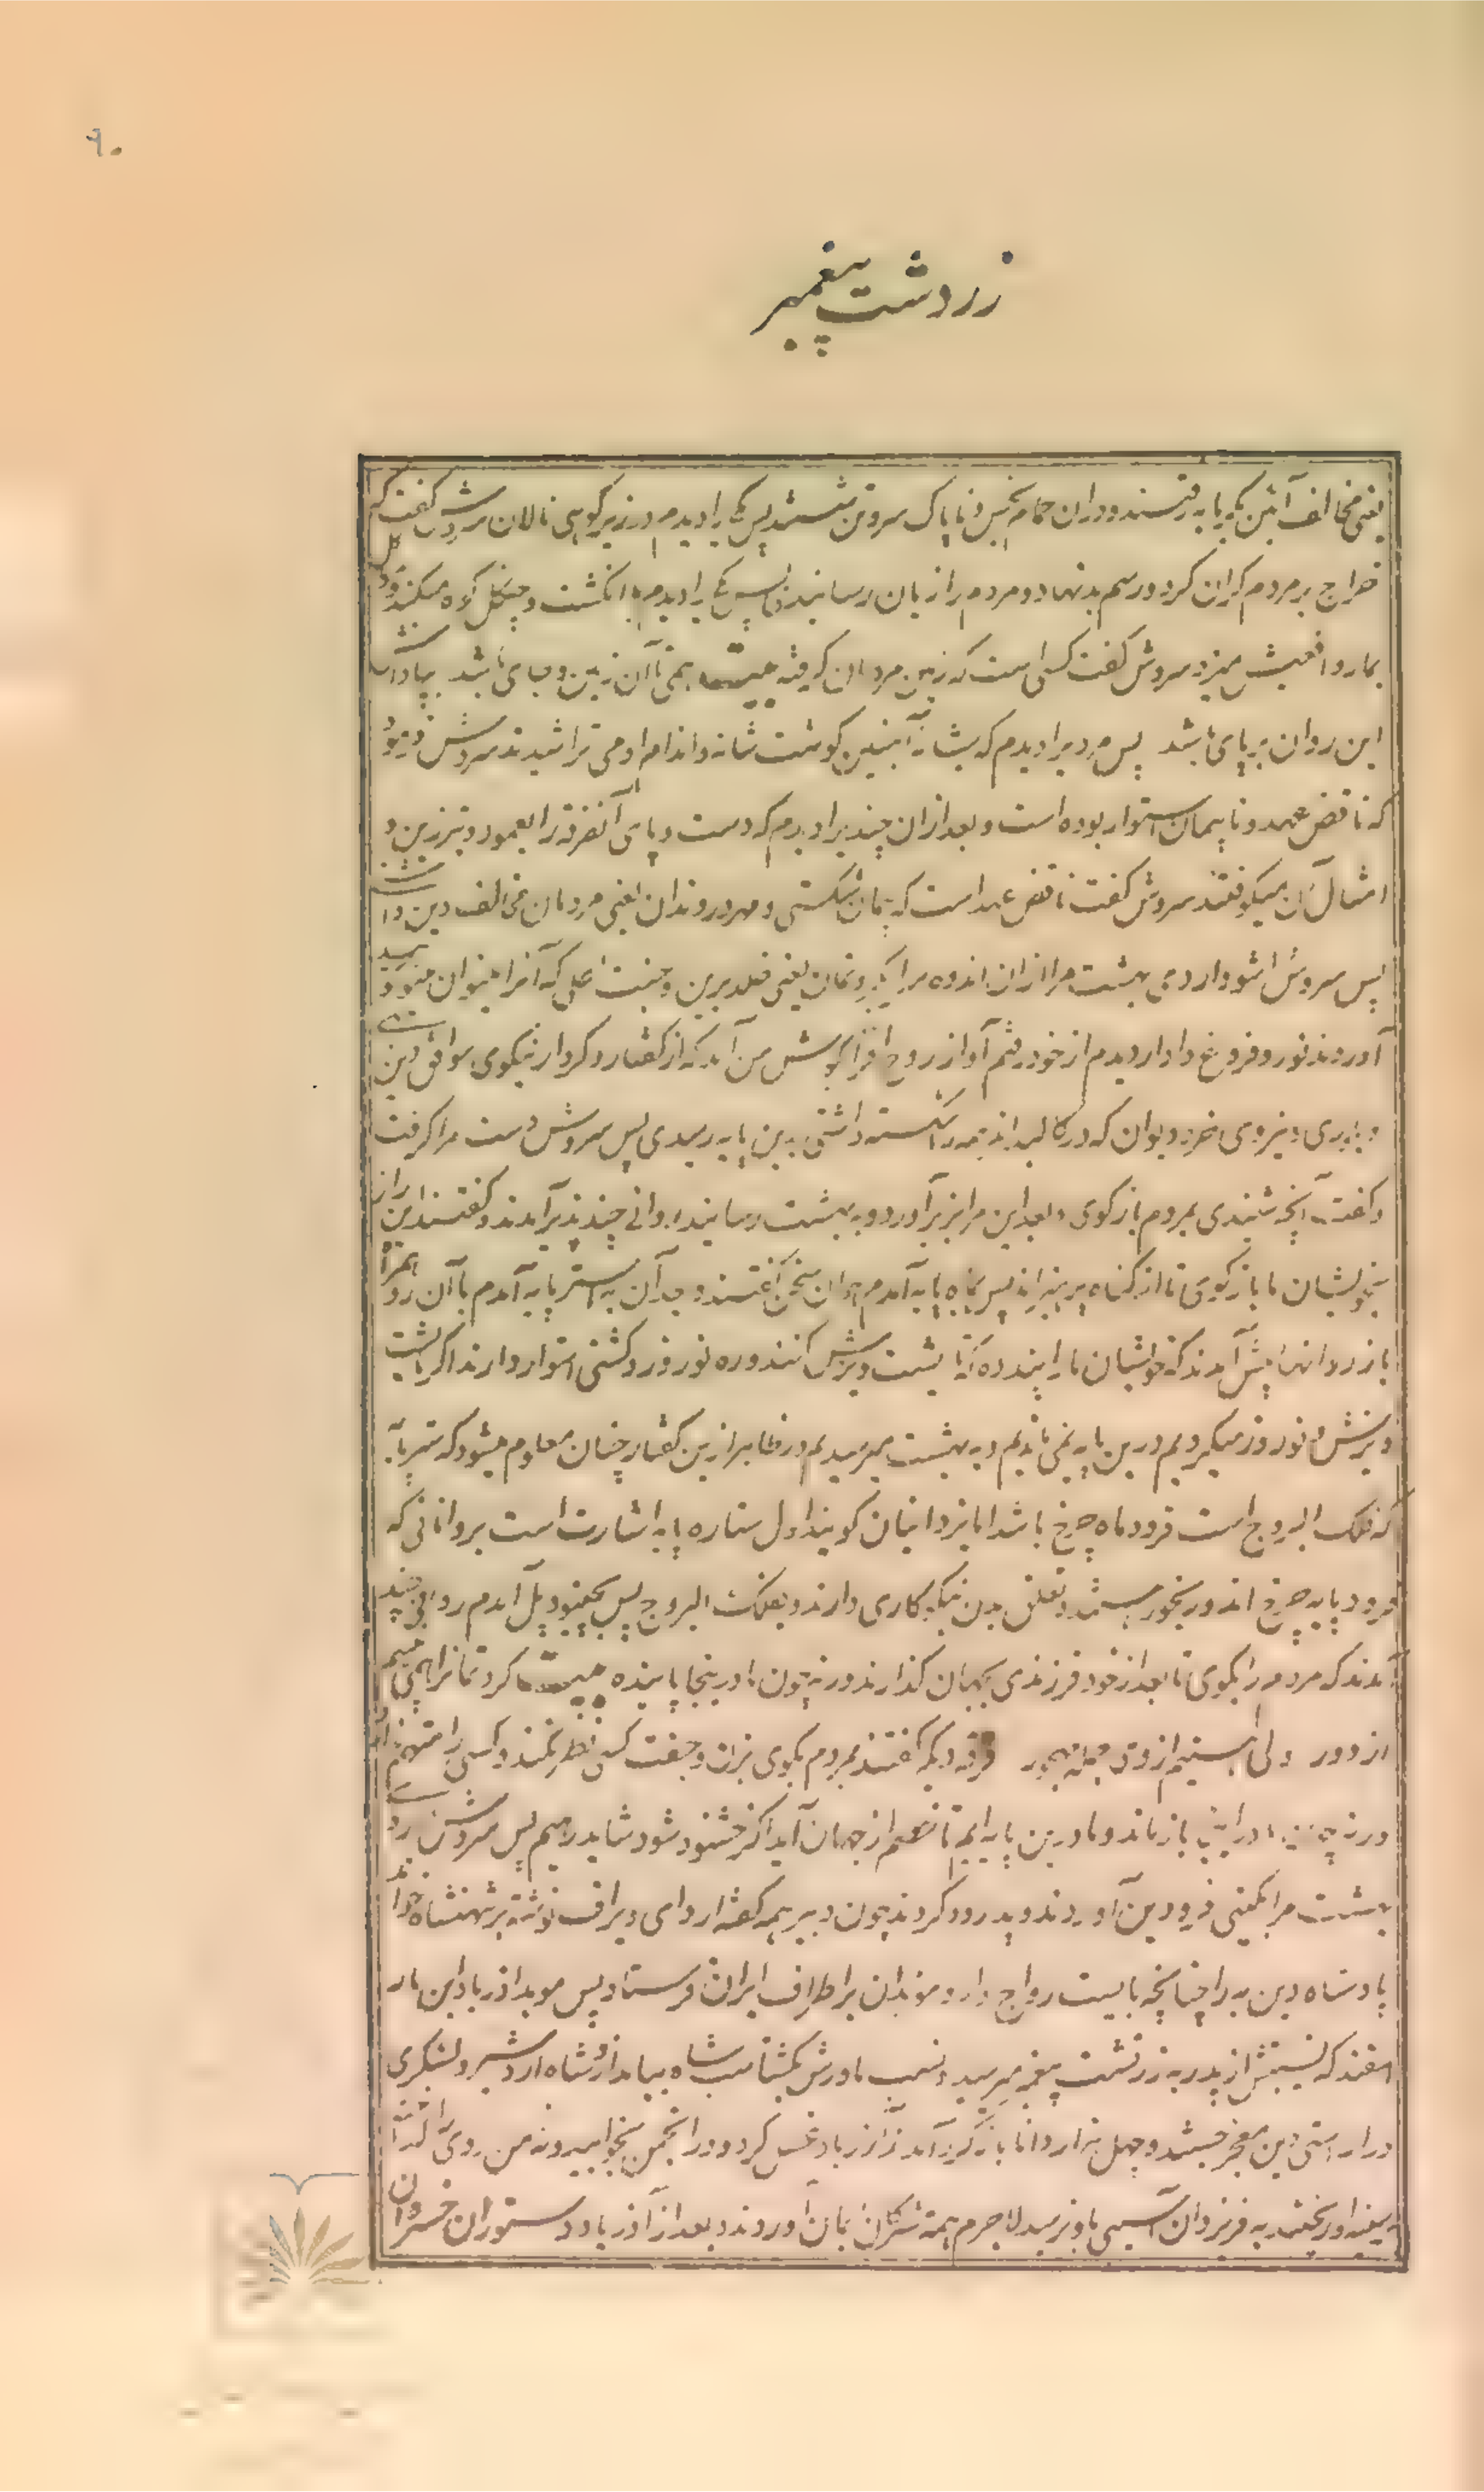 ۹۰
زردشت پیغمبر
یعنی مخالف آئین گرمابه رفتند و دران حمام نجس و ناپاک سر و تن شستند پس یکی را دیدم در زیر کوهی نالان سروش گفت که
خراج بر مردم گران کرد و رسم بد نهاد و مردم را زیان رسانید پس یکی را دیدم با انگشت و چنگل کوه میکند و
مار و افعیش میزد سروش گفت کسی است که زمین مردمان گرفته همی تا آن زمین و جای باشد پاداش
این روان برپای باشد پس مردیرا دیدم که بشانه آهنین گوشت شانه و اندام او می تراشیدند سروش فرمود
که ناقض عهد و ناپیمان استوار بوده است و بعد ازان چندیرا دیدم که دست و پای آنفرقه را بعمود و تبرزین و
امثال آن میکوفتند سروش گفت ناقض عهد است که پیمان شکستی و مهر دروندان یعنی مردمان مخالف دین داشت
پس سروش اشو و اردی بهشت مرا ازان اندوه سرا بگروثمان یعنی خلد برین و جنت اعلی که آنرا مینوان مینو
آوردند نور و فروغ دادار دیدم از خود رفتم آواز روح افزا بگوش من آمد که از گفتار و کردار نیکوی موافق دین
و نیروی خرد دیوان که در کالبد اند همه را شکسته داشتی بدین پایه رسیدی پس سروش دست مرا گرفت
و گفت آنچه شنیدی بمردم بازگوی و بعد این مرا بزیر آورد و به بهشت رسانید روانی چند پذیره آمدند و گفتند این راز
بخویشان ما بازگوی تا از گناه بپرهیزند پس بماه پایه آمدم همان سخن گفتند و بعد آن به استر پایه آمدم با آن روان همراه
باز روانها پیش آمدند که خویشان ما را پند ده که تا یشت و یزش کنند و ره نوروز و کشتی استوار دارند اگر ما یشت
و یزش و نوروز میکردیم درین پایه نمی ماندیم و به بهشت میرسیدیم و در ظاهر ازین گفتار چنان معلوم میشود که ستر پایه
که فلک البروج است فرود ماه چرخ باشد اما یزدانیان گویند اول ستاره پایه اشارت است بروانانی که
فرود پایه چرخ اند و رنجور هستند و تعلق بدن نیکو کاری دارند و بفلک البروج پس بچینود پل آمدم روانی چند
آمدند که مردم را بگوی تا بعد از خود فرزندی بجهان گذارند ورنه چون ما درینجا پاینده کرد تماثرا همی بینیم
از دور ولی فرقه دیگر گفتند بمردم بگوی بزن و جفت کس نظر نکنند و کسی را متهم
ورنه چون ما در اینجا بازماند و ما درین پایه ایم تا خصم از جهان آید اگر خشنود شود شاید رهیم پس سروش و اردی
بهشت مرا بگیتی فرودین آوردند و پدرود کردند چون دبیر همه گفته اردای ویراف نوشته بر شهنشاه خواند
پادشاه دین به را چنانچه بایست رواج داد و موبدان بر اطراف ایران فرستاد پس موبد آذرباد ابن مار
اسفند که نسبتش از پدر به زردشت پیغمبر میرسید و نسب مادرش بگشتاسب شاه بیامد از و شاه اردشیر و لشکری
در راستی دین معجز جستند و چهل هزار دانا بانگ گرد آمد آذرباد غسل کرد و در انجمن بخوابید و نه من روی
سینه او ریختند به فر یزدان آسیبی باو نرسید لاجرم همه مشرکان ایمان آوردند و بعد از آذرباد دستوران خسروان